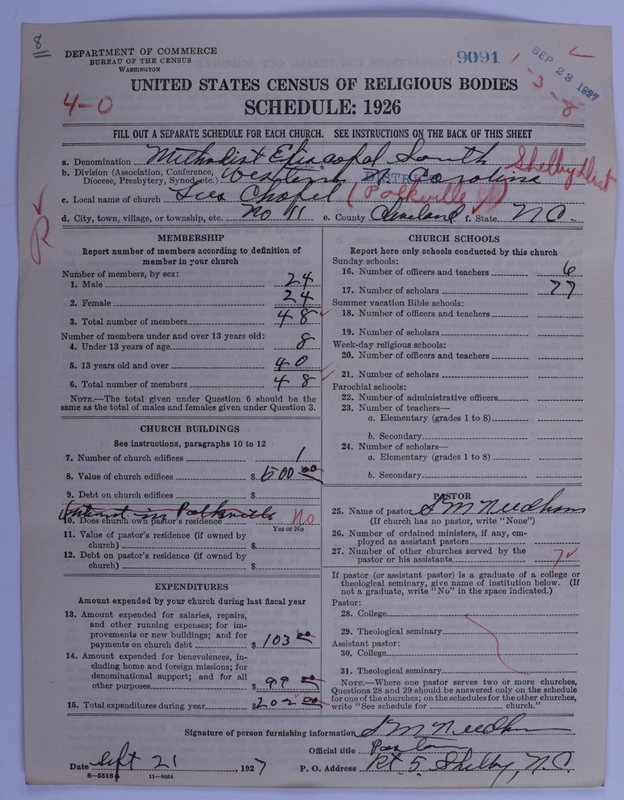 8
DEPARTMENT OF COMMERCE
BUREAU OF THE CENSUS
WASHINGTON
9091
SEP 23 1927
1-3-8
UNITED STATES CENSUS OF RELIGIOUS BODIES
4-0
SCHEDULE: 1926
FILL OUT A SEPARATE SCHEDULE FOR EACH CHURCH. SEE INSTRUCTIONS ON THE BACK OF THIS SHEET
a. Denomination Methodist Episcopal South
Shelby Dist
b. Division (Association, Conference, Diocese, Presbytery, Synod, etc.) Western Carolina
c. Local name of church Chapel (Polkville
d. City, town, village, or township, etc. No 11 e. County Cleveland f. State N.C.
R
MEMBERSHIP
Report number of members according to definition of
member in your church
Number of members, by sex:
1. Male 24
2. Female 24
3. Total number of members 48
Number of members under and over 13 years old:
4. Under 13 years of age 8
5. 13 years old and over 40
6. Total number of members 48
NOTE.—The total given under Question 6 should be the
same as the total of males and females given under Question 3.
CHURCH BUILDINGS
See instructions, paragraphs 10 to 12
7. Number of church edifices 1
8. Value of church edifices $ 600 00
9. Debt on church edifices $
Interest in Polkville
10. Does church own pastor's residence No
Yes or No
11. Value of pastor's residence (if owned by
church) $
12. Debt on pastor's residence (if owned by
church) $
EXPENDITURES
Amount expended by your church during last fiscal year
13. Amount expended for salaries, repairs,
and other running expenses; for im-
provements or new buildings; and for
payments on church debt $ 103 00
14. Amount expended for benevolences, in-
cluding home and foreign missions; for
denominational support; and for all
other purposes $ 99 00
15. Total expenditures during year $ 202 00
CHURCH SCHOOLS
Report here only schools conducted by this church
Sunday schools:
16. Number of officers and teachers 6
17. Number of scholars 77
Summer vacation Bible schools:
18. Number of officers and teachers
19. Number of scholars
Week-day religious schools:
20. Number of officers and teachers
21. Number of scholars
Parochial schools:
22. Number of administrative officers
23. Number of teachers—
a. Elementary (grades 1 to 8)
b. Secondary
24. Number of scholars—
a. Elementary (grades 1 to 8)
b. Secondary
PASTOR
25. Name of pastor S M Needham
(If church has no pastor, write "None")
26. Number of ordained ministers, if any, em-
ployed as assistant pastors
27. Number of other churches served by the
pastor or his assistants 7
If pastor (or assistant pastor) is a graduate of a college or
theological seminary, give name of institution below. (If
not a graduate, write "No" in the space indicated.)
Pastor:
28. College
29. Theological seminary
Assistant pastor:
30. College
31. Theological seminary
NOTE.—Where one pastor serves two or more churches,
Questions 28 and 29 should be answered only on the schedule
for one of the churches; on the schedules for the other churches,
write "See schedule for church."
Signature of person furnishing information S M Needham
Official title Pastor
Date Sept 21, 1927 P. O. Address Rt 5. Shelby, N.C.
8-5518a 11-9054